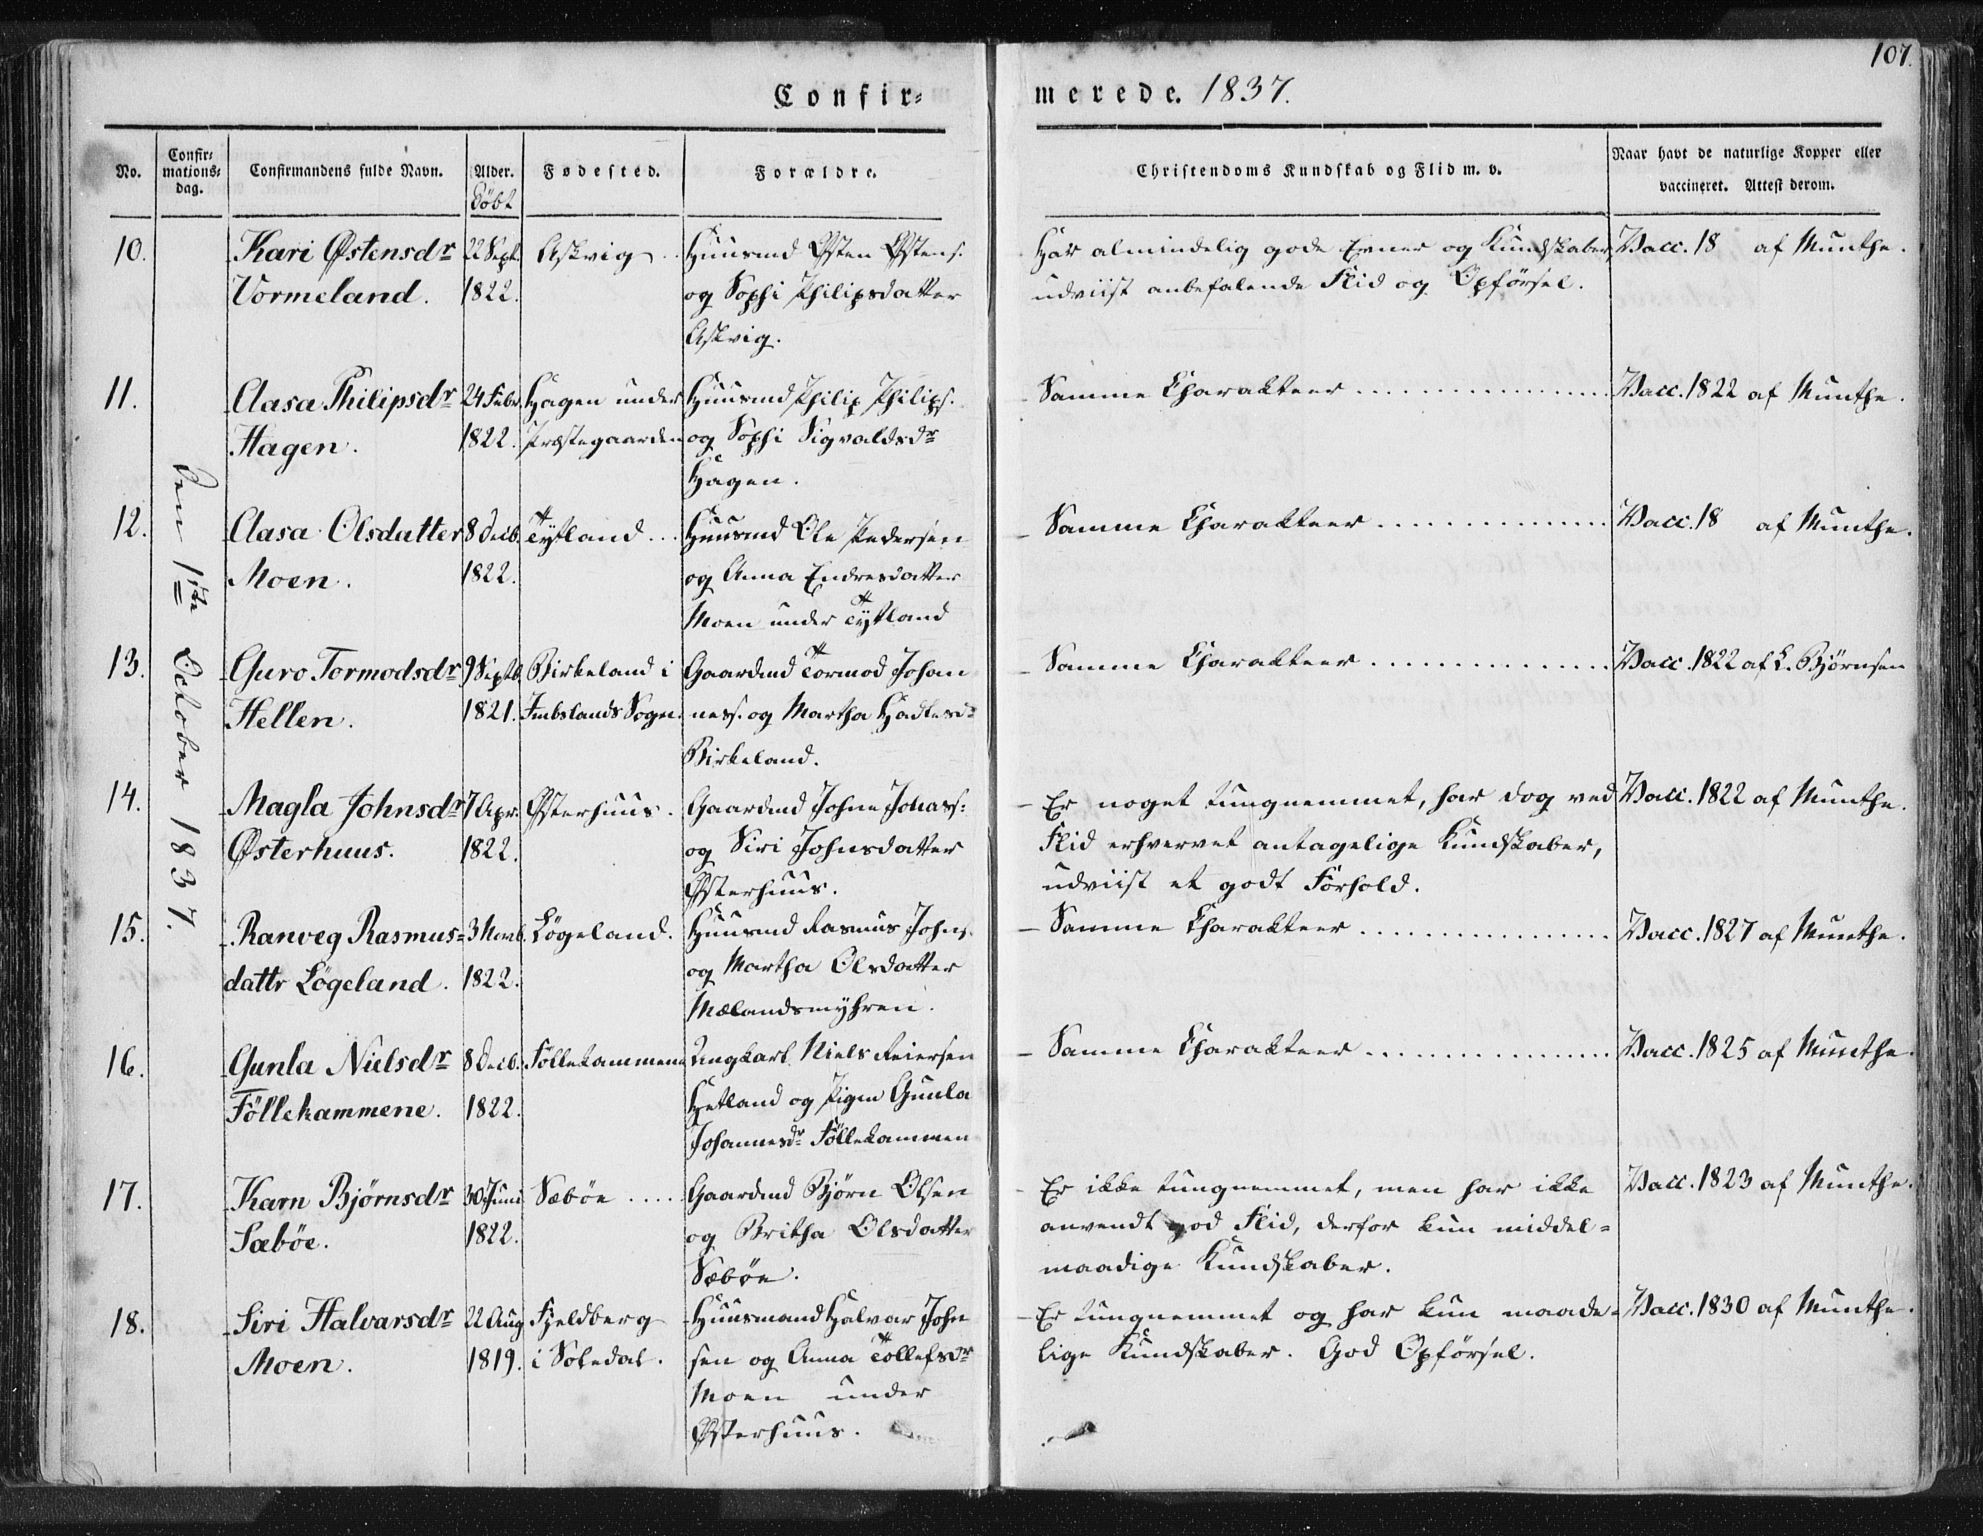 107.
Confir=
merede. 1837.
No.
Confir=
mations=
dag.
Confirmandens fulde Navn.
Alder.
Döbt
Fødested.
Forældre.
Christendoms Kundskab og Flid m. v.
Naar havt de naturlige Kopper eller
vaccineret. Attest derom.
Den 1ste October 1837.
10.
Kari Østensdr
Vormeland.
22 Sept.
1822.
Askvig ..
Huusmd Østen Østens.
og Sophi Philipsdatter
Askvig.
Har almindelig gode Evner og Kundskaber,
udviist anbefalende Flid og Opførsel.
Vacc. 18 af Munthe.
11.
Aasa Philipsdr
Hagen.
24 Febr.
1822.
Hagen under
Præstegaarden
Huusmd Philip Philips.
og Sophi Sigvaldsdr
Hagen.
Samme Charakteer
Vacc. 1822 af Munthe.
12.
Aasa Olsdatter
Moen.
8 Decb.
1822.
Tytland ...
Huusmd Ole Pedersen
og Anna Endresdatter
Moen under Tytland
Samme Charakteer
Vacc. 18 af Munthe.
13.
Guro Tormodsdr
Hellen.
9 Septb.
1821.
Birkeland i
Imbslands Sogn.
Gaardmd Tormod Johan
ness. og Martha Hadlesd=
Birkeland.
Samme Charakteer
Vacc. 1822 af L. Bjørnsen
14.
Magla Johnsdr
Østerhuus.
7 Apr.
1822.
Østerhuus.
Gaardmd Johne Johass:
og Siri Johnsdatter
Østerhuus.
Er noget tungnemmet, har dog ved
Flid erhvervet antagelige Kundskaber,
udviist et godt Forhold.
Vacc. 1822 af Munthe.
15.
Ranveg Rasmus=
dattr Løgeland.
3 Novb.
1822.
Løgeland.
Huusmd Rasmus Johns.
og Martha Olsdatter
Mælandsmyhren.
Samme Charakteer
Vacc. 1827 af Munthe.
16.
Gunla Nielsdr
Föllekammene.
8 Decb.
1822.
Föllekammene
Ungkarl Niels Reiersen
Hetland og Pigen Gunla
Johannesdr Föllekammen
Samme Charakteer
Vacc. 1825 af Munthe.
17.
Karn Bjørnsdr
Sæbøe.
30 Juni
1822.
Sæbøe .....
Gaardmd Bjørn Olsen
og Britha Olsdatter
Sæbøe.
Er ikke tungnemmet, men har ikke
anvendt god Flid, derfor kun middel=
maadige Kundskaber.
Vacc. 1823 af Munthe.
18.
Siri Halvarsdr
Moen.
22 Aug
1819.
Fjeldberg
i Soledal.
Huusmand Halvar John
sen og Anna Tollefsdr
Moen under
Østerhuus.
Er tungnemmet og har kun maade=
lige Kundskaber. God Opførsel.
Vacc. 1830 af Munthe.